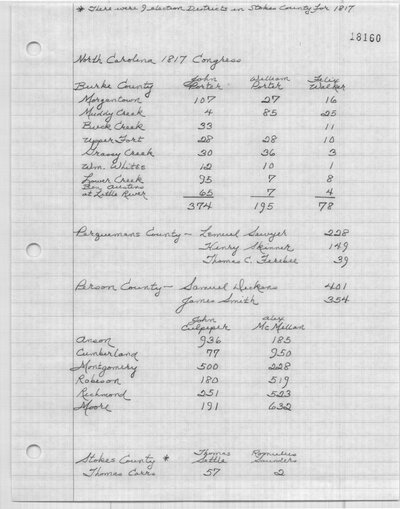 * There were 9 election Districts in Stokes County for 1817
18160
North Carolina 1817 Congress
Burke County John Porter William Porter Felix Walker
Morgantown 107 27 16
Muddy Creek 4 85 25
Buck Creek 33 11
Upper Fort 28 28 10
Grassy Creek 30 36 3
Wm. Whites 12 10 1
Lower Creek 95 7 8
Ben Austins
at Little River 65 7 4
374 195 78
Perquemans County - Lemuel Sawyer 228
Henry Skinner 149
Thomas C. Ferebee 39
Person County - Samuel Dickens 401
James Smith 354
John Culpeper Alex McMillan
Anson 936 185
Cumberland 77 950
Montgomery 500 228
Robeson 180 519
Richmond 251 523
Moore 191 632
Stokes County * Thomas Settle Romulus Saunders
Thomas Carrs 57 2